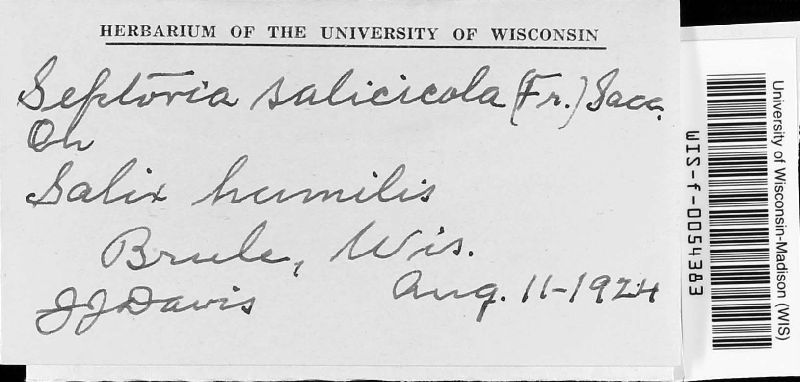 HERBARIUM OF THE UNIVERSITY OF WISCONSIN
Septoria salicicola (Fr.) Sacc.
On
Salix humilis
Brule, Wis.
JJDavis Aug. 11-1924
University of Wisconsin-Madison (WIS)
WIS-f-0054383